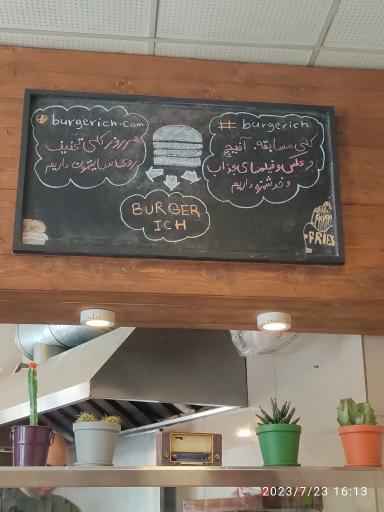 burgerich.com
هر روز کلی تخفیف
روی سایتمون داریم
# burgerich
کلی مسابقه. آفیچ
و عکس و فیلمای جذاب
داریم
BURGER
ICH
FRIES
2023/7/23 16:13